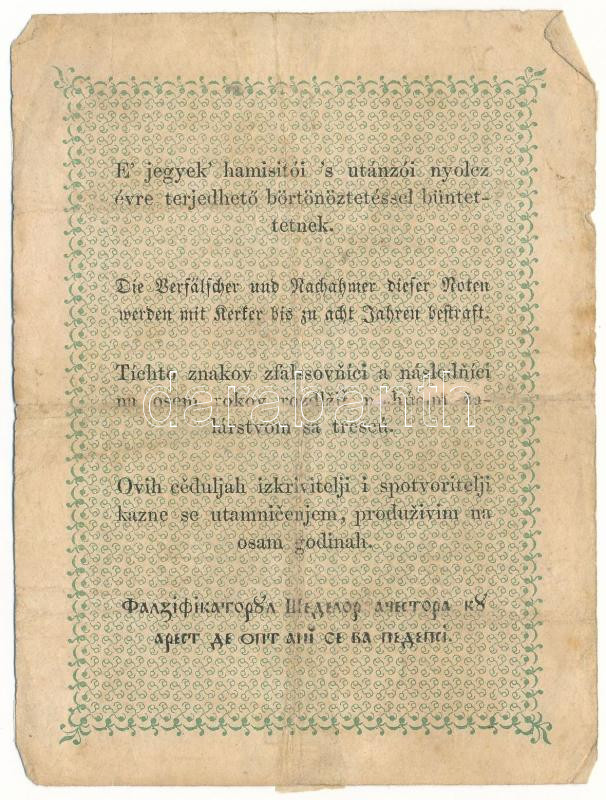 E' jegyek' hamisítói 's utánzói nyolcz
évre terjedhető börtönöztetéssel büntet-
tetnek.
Die Verfälscher und Nachahmer dieser Noten
werden mit Kerker bis zu acht Jahren bestraft.
Tíchto znakov zfal-sovňíci a následňíci
na osem rokov
lárstvom sa trescú.
Ovih cěduljah izkrivitelji i spotvoritelji
kazne se utamničenjem, produživim na
osam godinah.
Фалꙁіфікаторꙋл Шеделор ачестора кꙋ
арест де опт анї се ва педепсі.
databanth